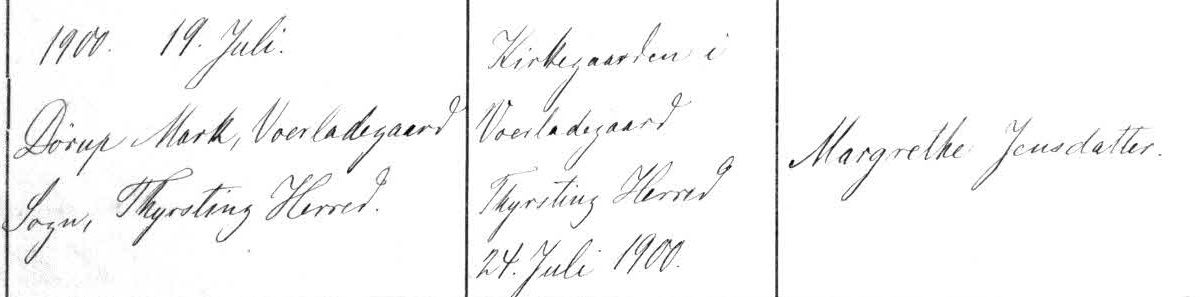 1900. 19. Juli.
Dörup Mark, Voerladegaard
Sogn, Thyrsting Herred.
Kirkegaarden i
Voerladegaard
Thyrsting Herred
24. Juli 1900.
Margrethe Jensdatter.